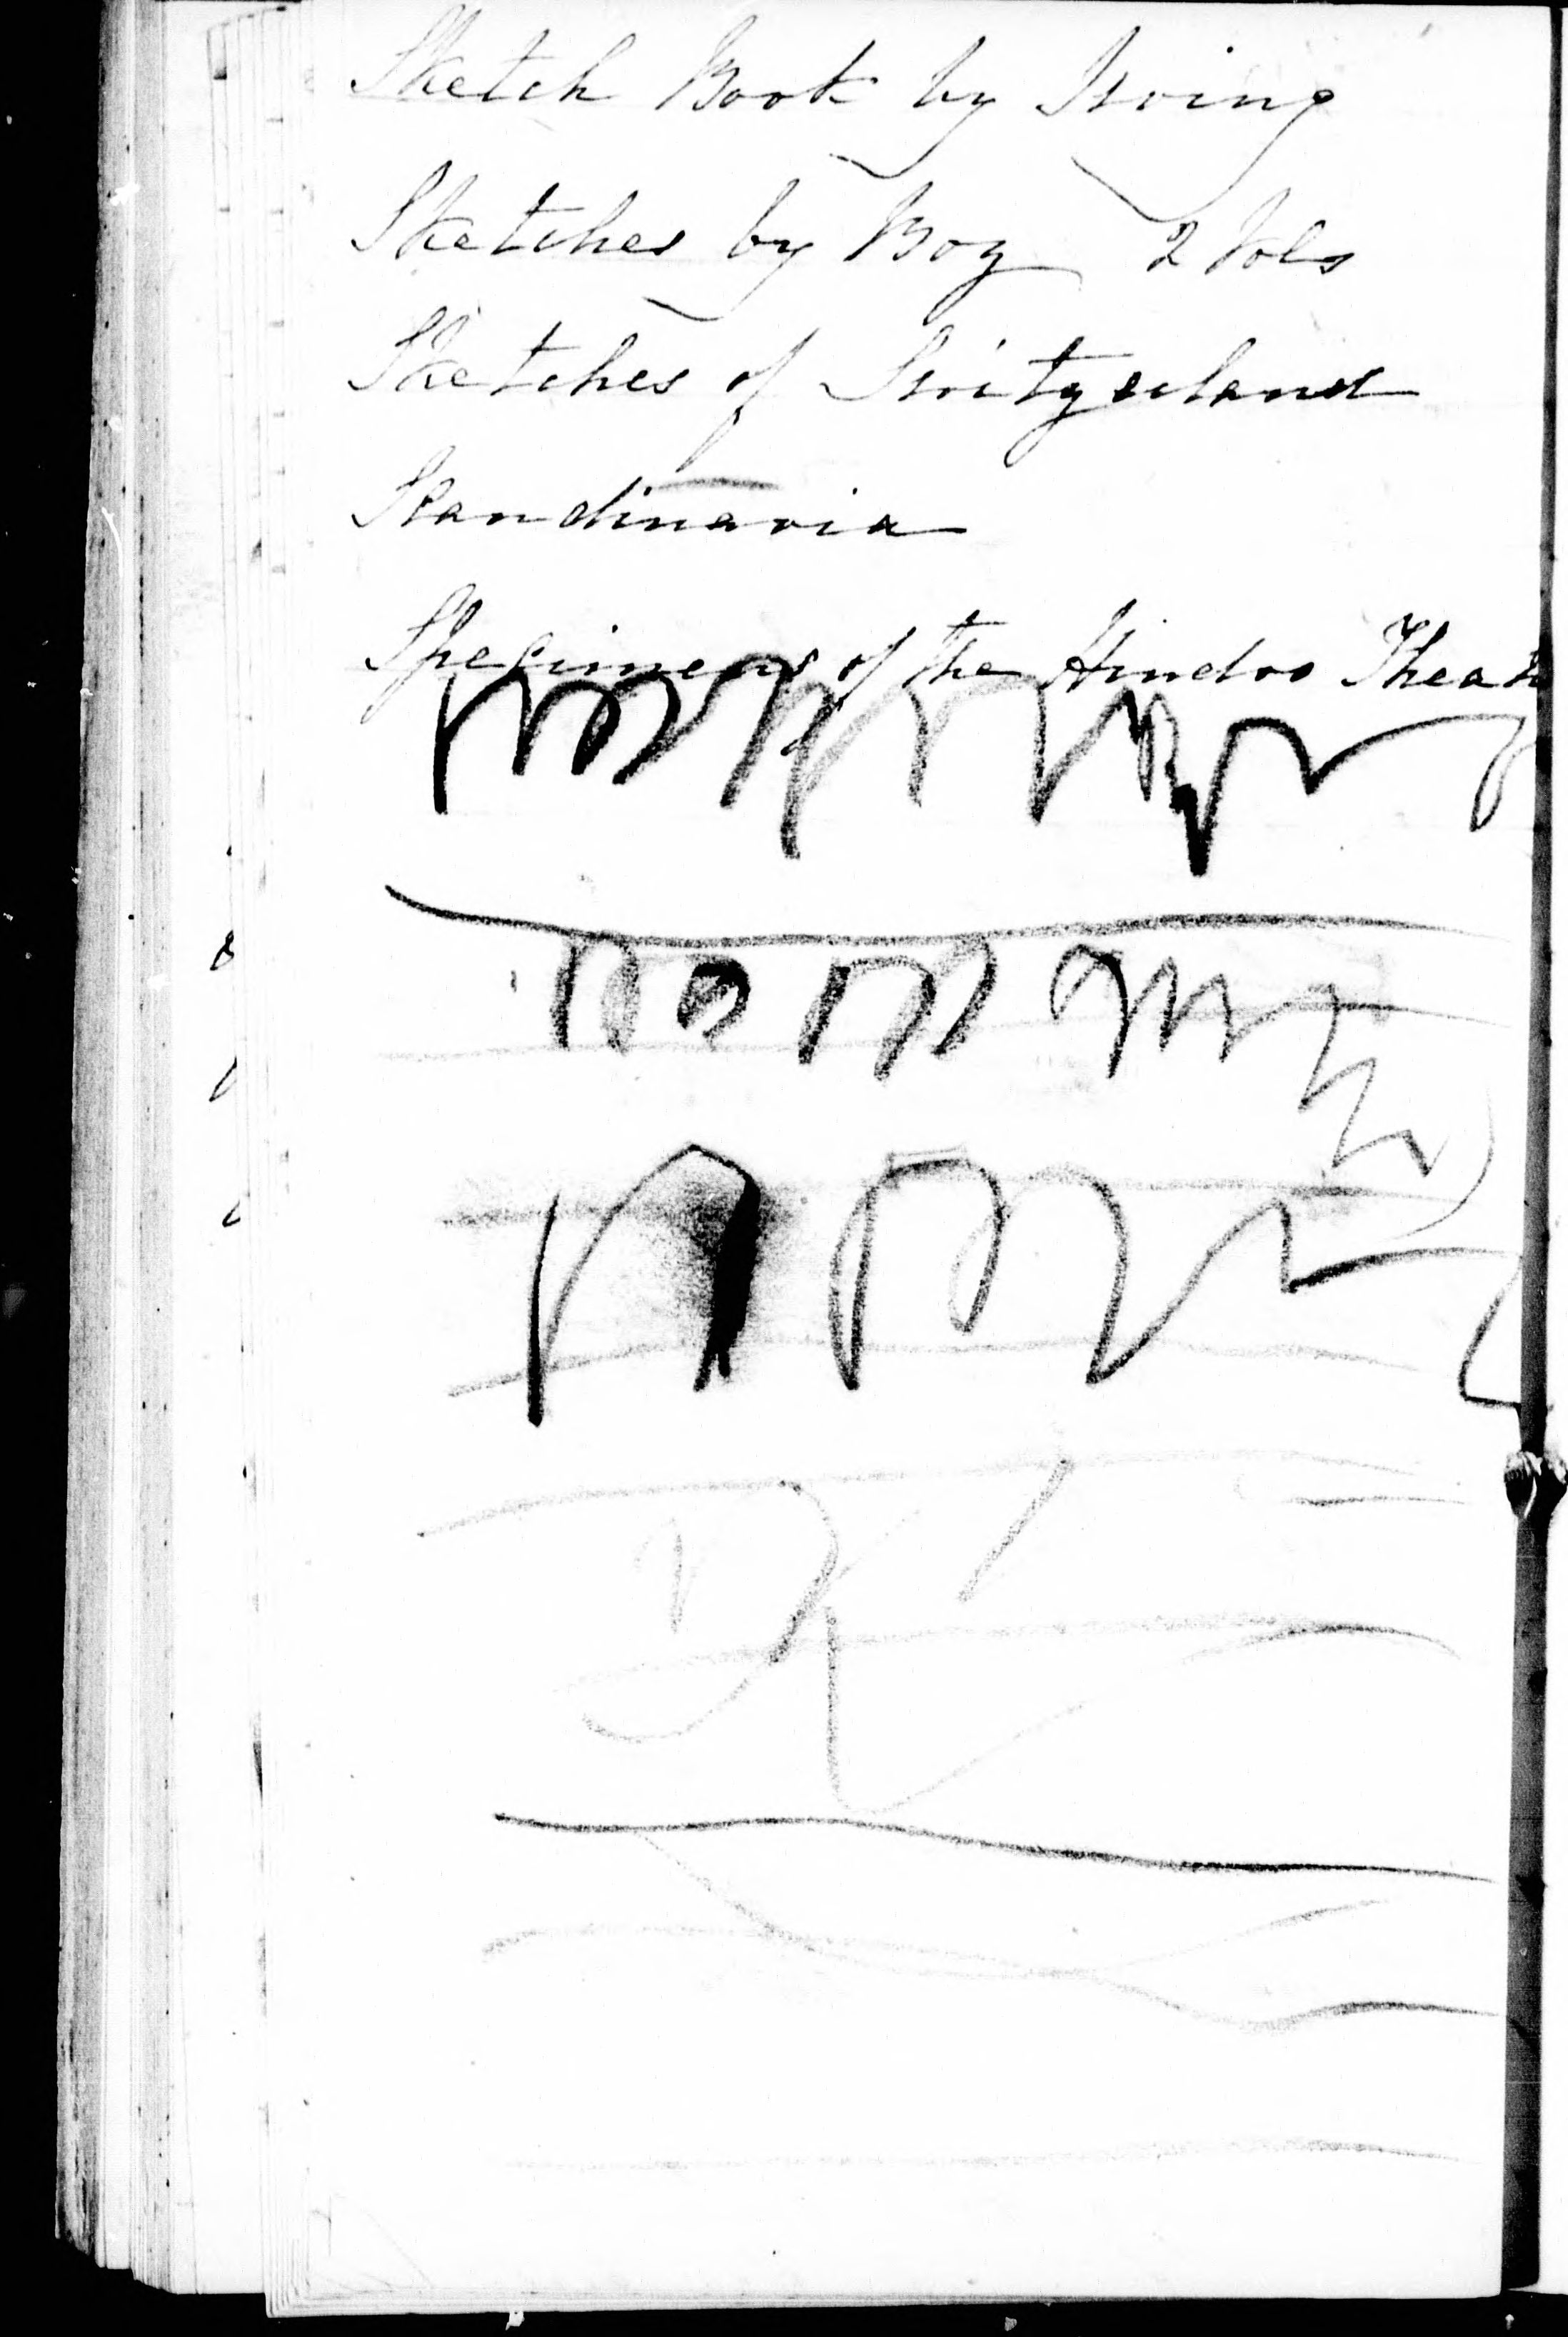 Sketch Book by Irving
Sketches by Boz 2 Vols
Sketches of Switzerland
Scandinavia
Specimens of the Hindoo Theat